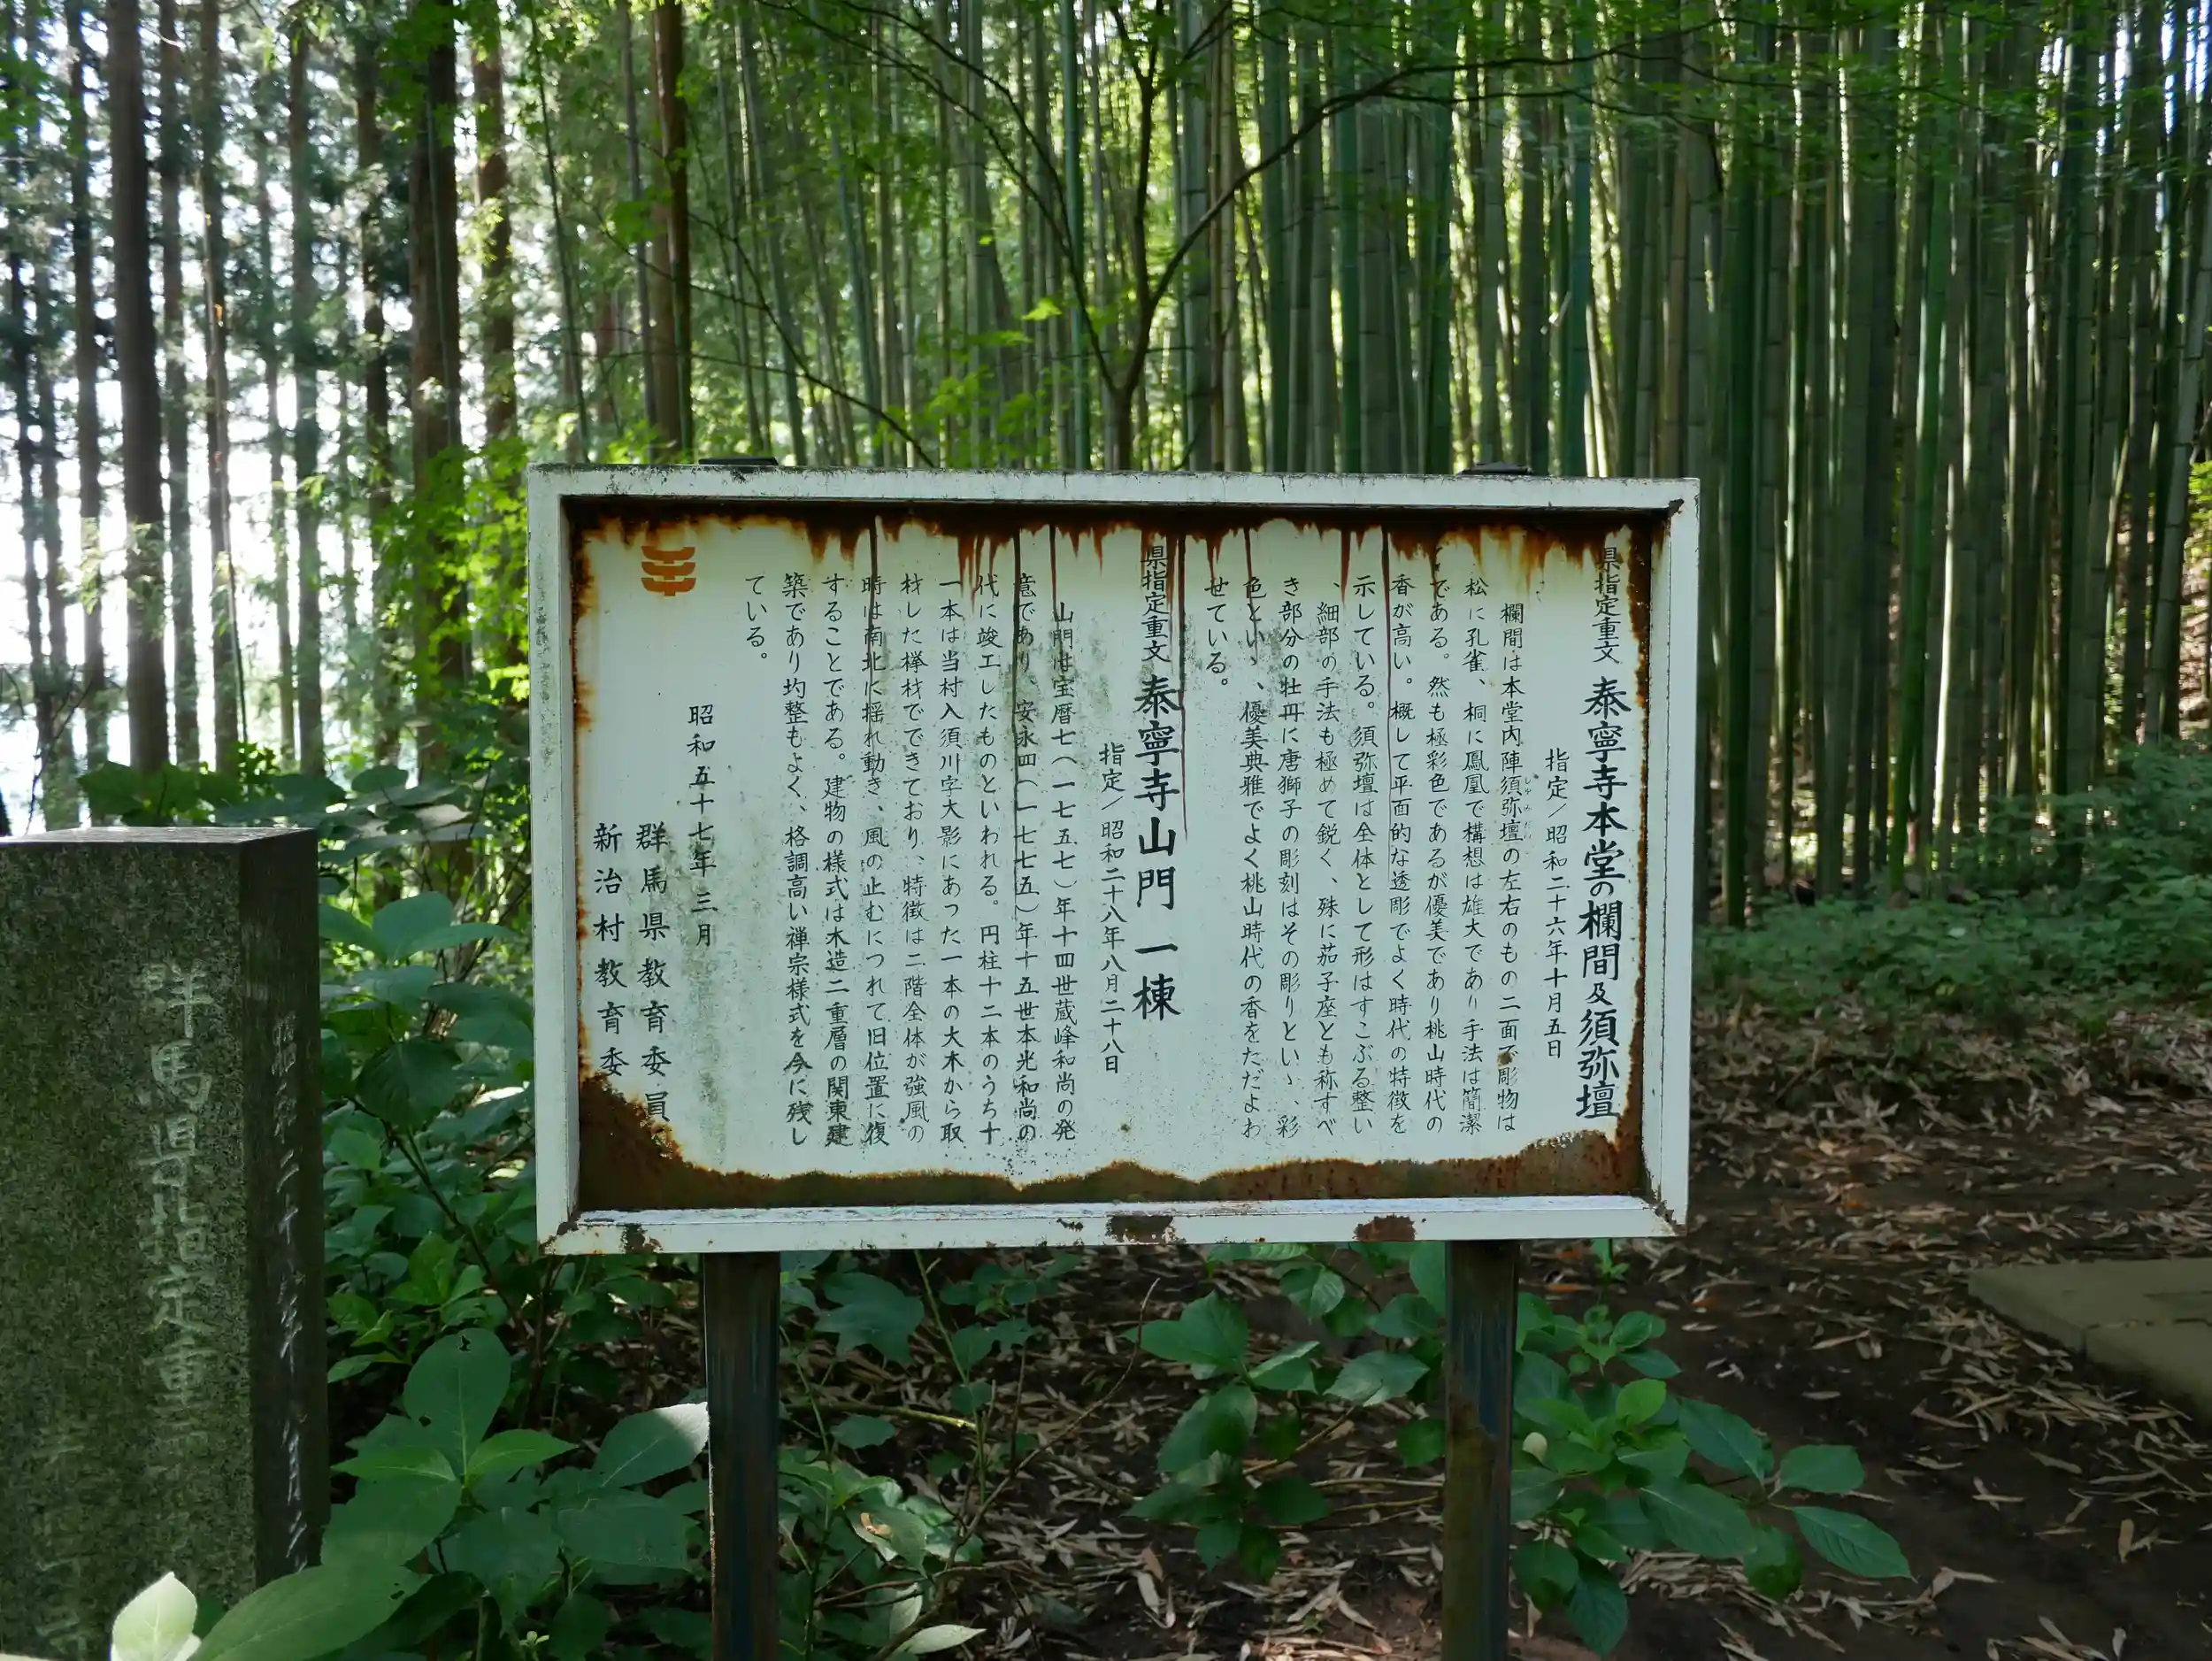 県指定重文 泰寧寺本堂の欄間及須弥壇
指定／昭和二十六年十月五日
欄間は本堂内陣須弥壇の左右のもの二面で彫物は
松に孔雀、桐に鳳凰で構想は雄大であり手法は簡潔
である。然も極彩色であるが優美であり桃山時代の
香が高い。概して平面的な透彫でよく時代の特徴を
示している。須弥壇は全体として形はすこぶる整い
、細部の手法も極めて鋭く、殊に茄子座とも称すべ
き部分の牡丹に唐獅子の彫刻はその彫りといゝ、彩
色といゝ、優美典雅でよく桃山時代の香をただよわ
せている。
県指定重文 泰寧寺山門 一棟
指定／昭和二十八年八月二十八日
山門は宝暦七（一七五七）年十四世蔵峰和尚の発
意であり、安永四（一七七五）年十五世本光和尚の
代に竣工したものといわれる。円柱十二本のうち十
一本は当村入須川字大影にあった一本の大木から取
材した欅材でできており、特徴は二階全体が強風の
時は南北に揺れ動き、風の止むにつれて旧位置に復
することである。建物の様式は木造二重層の関東建
築であり均整もよく、格調高い禅宗様式を今に残し
ている。
昭和五十七年三月
群馬県教育委員
新治村教育委
群馬県指定重